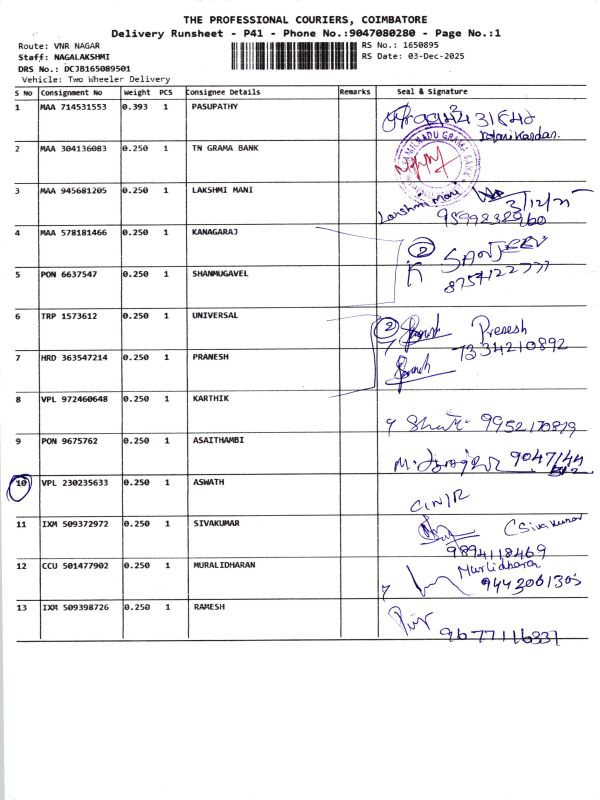 THE PROFESSIONAL COURIERS, COIMBATORE
Delivery Runsheet - P41 - Phone No.:9047080280 - Page No.:1
Route: VNR NAGAR RS No.: 1650895
Staff: NAGALAKSHMI RS Date: 03-Dec-2025
DRS No.: DCJB165089501
Vehicle: Two Wheeler Delivery
S No Consignment No Weight PCS Consignee Details Remarks Seal & Signature
1 MAA 714531553 0.393 1 PASUPATHY
2 MAA 304136083 0.250 1 TN GRAMA BANK
TAMILNADU GRAMA BANK
3 MAA 945681205 0.250 1 LAKSHMI MANI
Lakshmi Mani 3/12/25
4 MAA 578181466 0.250 1 KANAGARAJ
② SANJEEV
5 PON 6637547 0.250 1 SHANMUGAVEL
K 8754122777
6 TRP 1573612 0.250 1 UNIVERSAL
② Presesh
7334210892
7 HRD 363547214 0.250 1 PRANESH
8 VPL 972460648 0.250 1 KARTHIK
9952170879
9 PON 9675762 0.250 1 ASAITHAMBI
9047144
10 VPL 230235633 0.250 1 ASWATH
11 IXM 509372972 0.250 1 SIVAKUMAR
C Sivakumar
9894118469
12 CCU 501477902 0.250 1 MURALIDHARAN
Murlidhara
13 IXM 509398726 0.250 1 RAMESH
9677116331